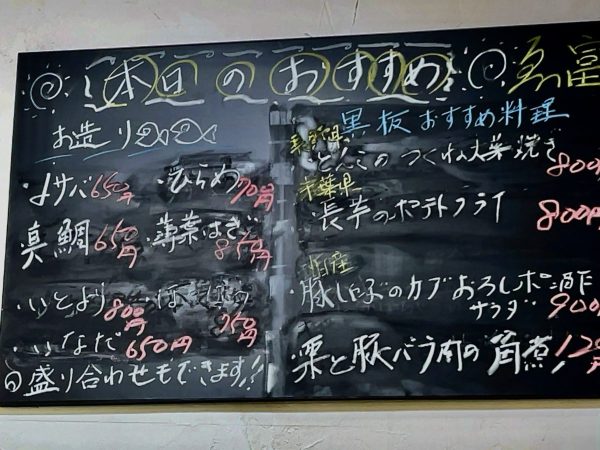 本日のおすすめ
ゑ富
お造り
〆サバ 650円 ・ひらめ 700円
真鯛 650円 ・薄葉はぎ 850円
・いとより 800円 950円
・いなだ 650円
◎盛り合わせもできます!!
黒板おすすめ料理
のつくね大葉焼き 800
千葉県
長芋のポテトフライ 800円
国産
・豚しゃぶのカブおろしポン酢サラダ 900
栗と豚バラ肉の角煮!